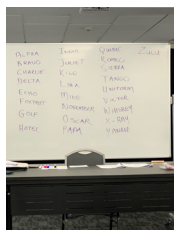 ALPHA
BRAVO
CHARLIE
DELTA
ECHO
FOXTROT
GOLF
HOTEL
INDIA
JULIET
KILO
LIMA
MIKE
NOVEMBER
OSCAR
PAPA
QUEBEC
ROMEO
SIERRA
TANGO
UNIFORM
VICTOR
WHISKEY
X-RAY
YANKEE
ZULU